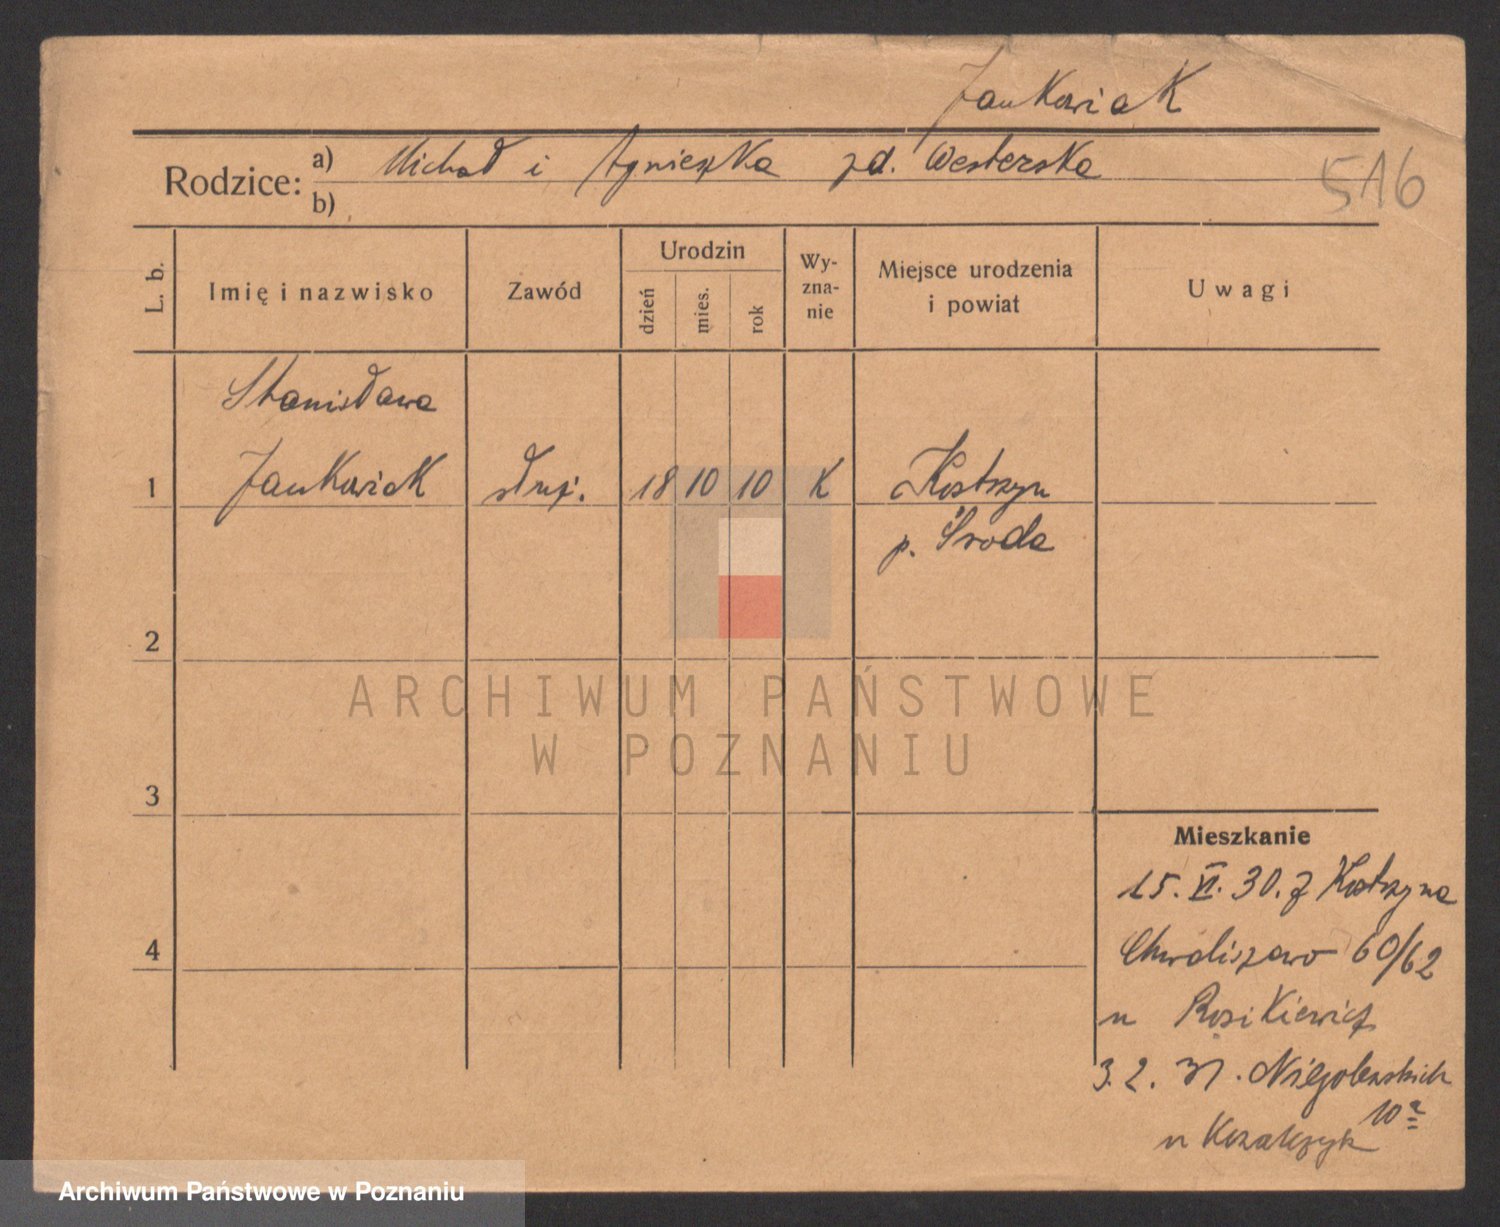 Jankowiak
Rodzice: a) Michał i Agnieszka zd. Westerska
b)
516
L. b.
Imię i nazwisko
Zawód
Urodzin
dzień
mies.
rok
Wy-
zna-
nie
Miejsce urodzenia
i powiat
Uwagi
Stanisława
1 Jankowiak służ. 18 10 10 K Kostrzyn
p. Środa
2
3
4
ARCHIWUM PAŃSTWOWE
W POZNANIU
Mieszkanie
15. VI. 30. z Kostrzyna
Chwaliszewo 60/62
u Rosikiewicz
3. 2. 31. Niegolewskich
10a
u Kozakzyk
Archiwum Państwowe w Poznaniu